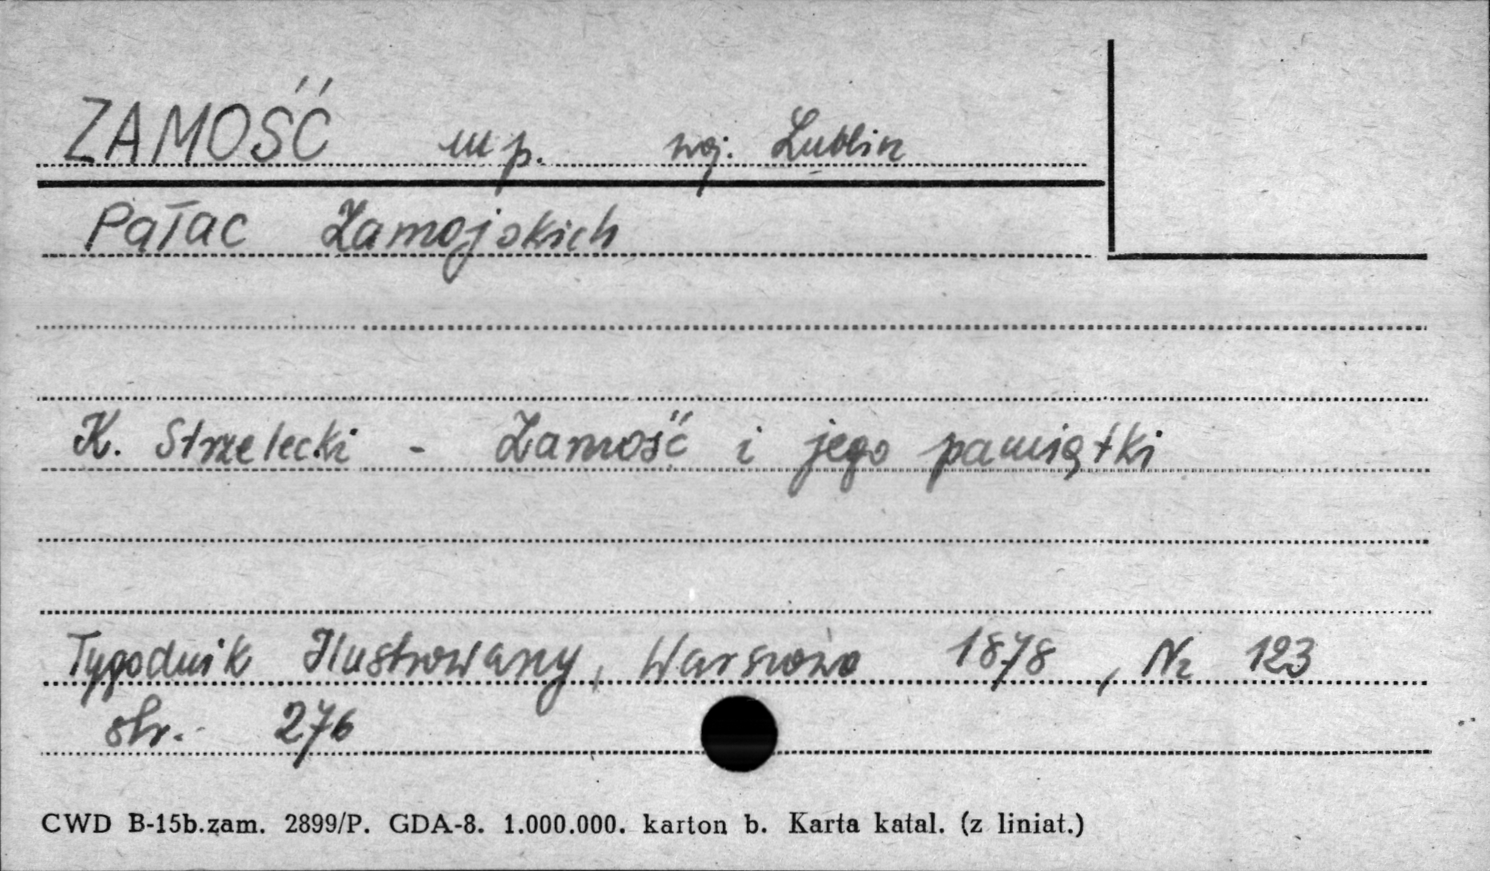 ZAMOŚĆ m p. woj. Lublin
Pałac Zamojskich
K. Strzelecki - Zamość i jego pamiątki
Tygodnik Ilustrowany, Warszawa 1878, Nr 123
str. 276
CWD B-15b.zam. 2899/P. GDA-8. 1.000.000. karton b. Karta katal. (z liniat.)